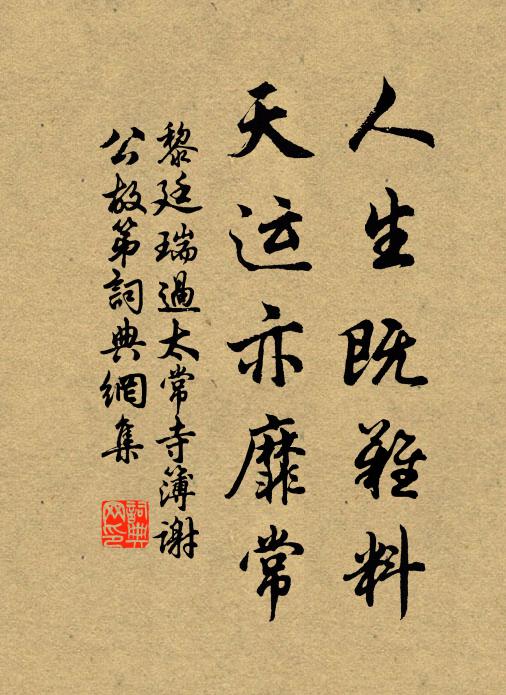 人生既難料
天运亦靡常
黎廷瑞過太常寺簿謝
公故第詞典網集
詞典
网印